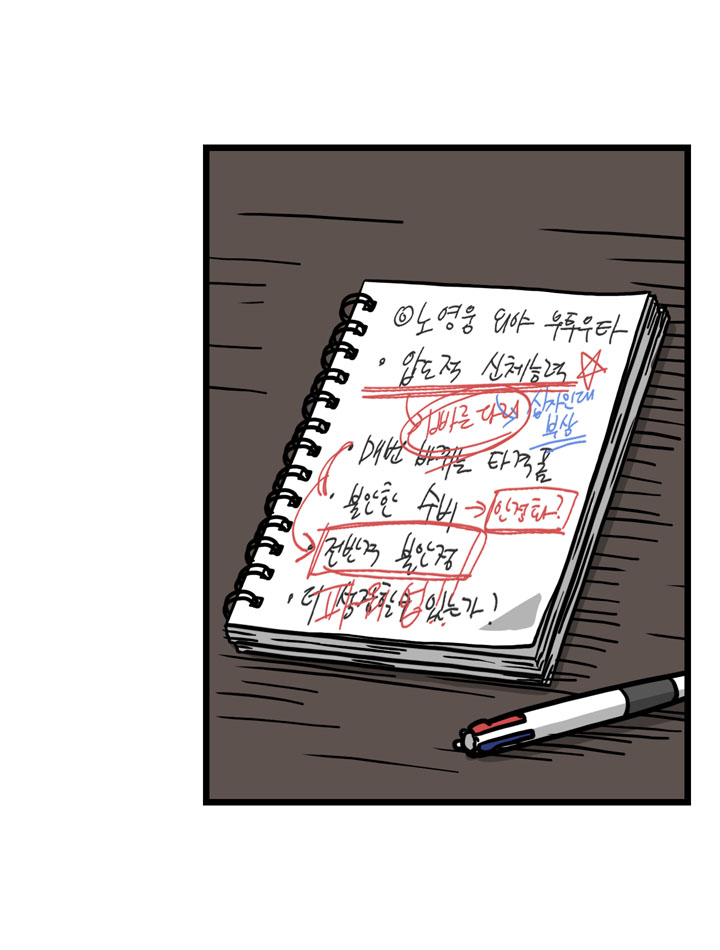 ◎노영웅 외야 우투우타
• 압도적 신체능력 ☆
빠른 다리
십자인대
부상
• 매번 바뀌는 타격폼
• 불안한 수비 → 안정화?
• 전반적 불안정
• 더 성장할 수 있는가?